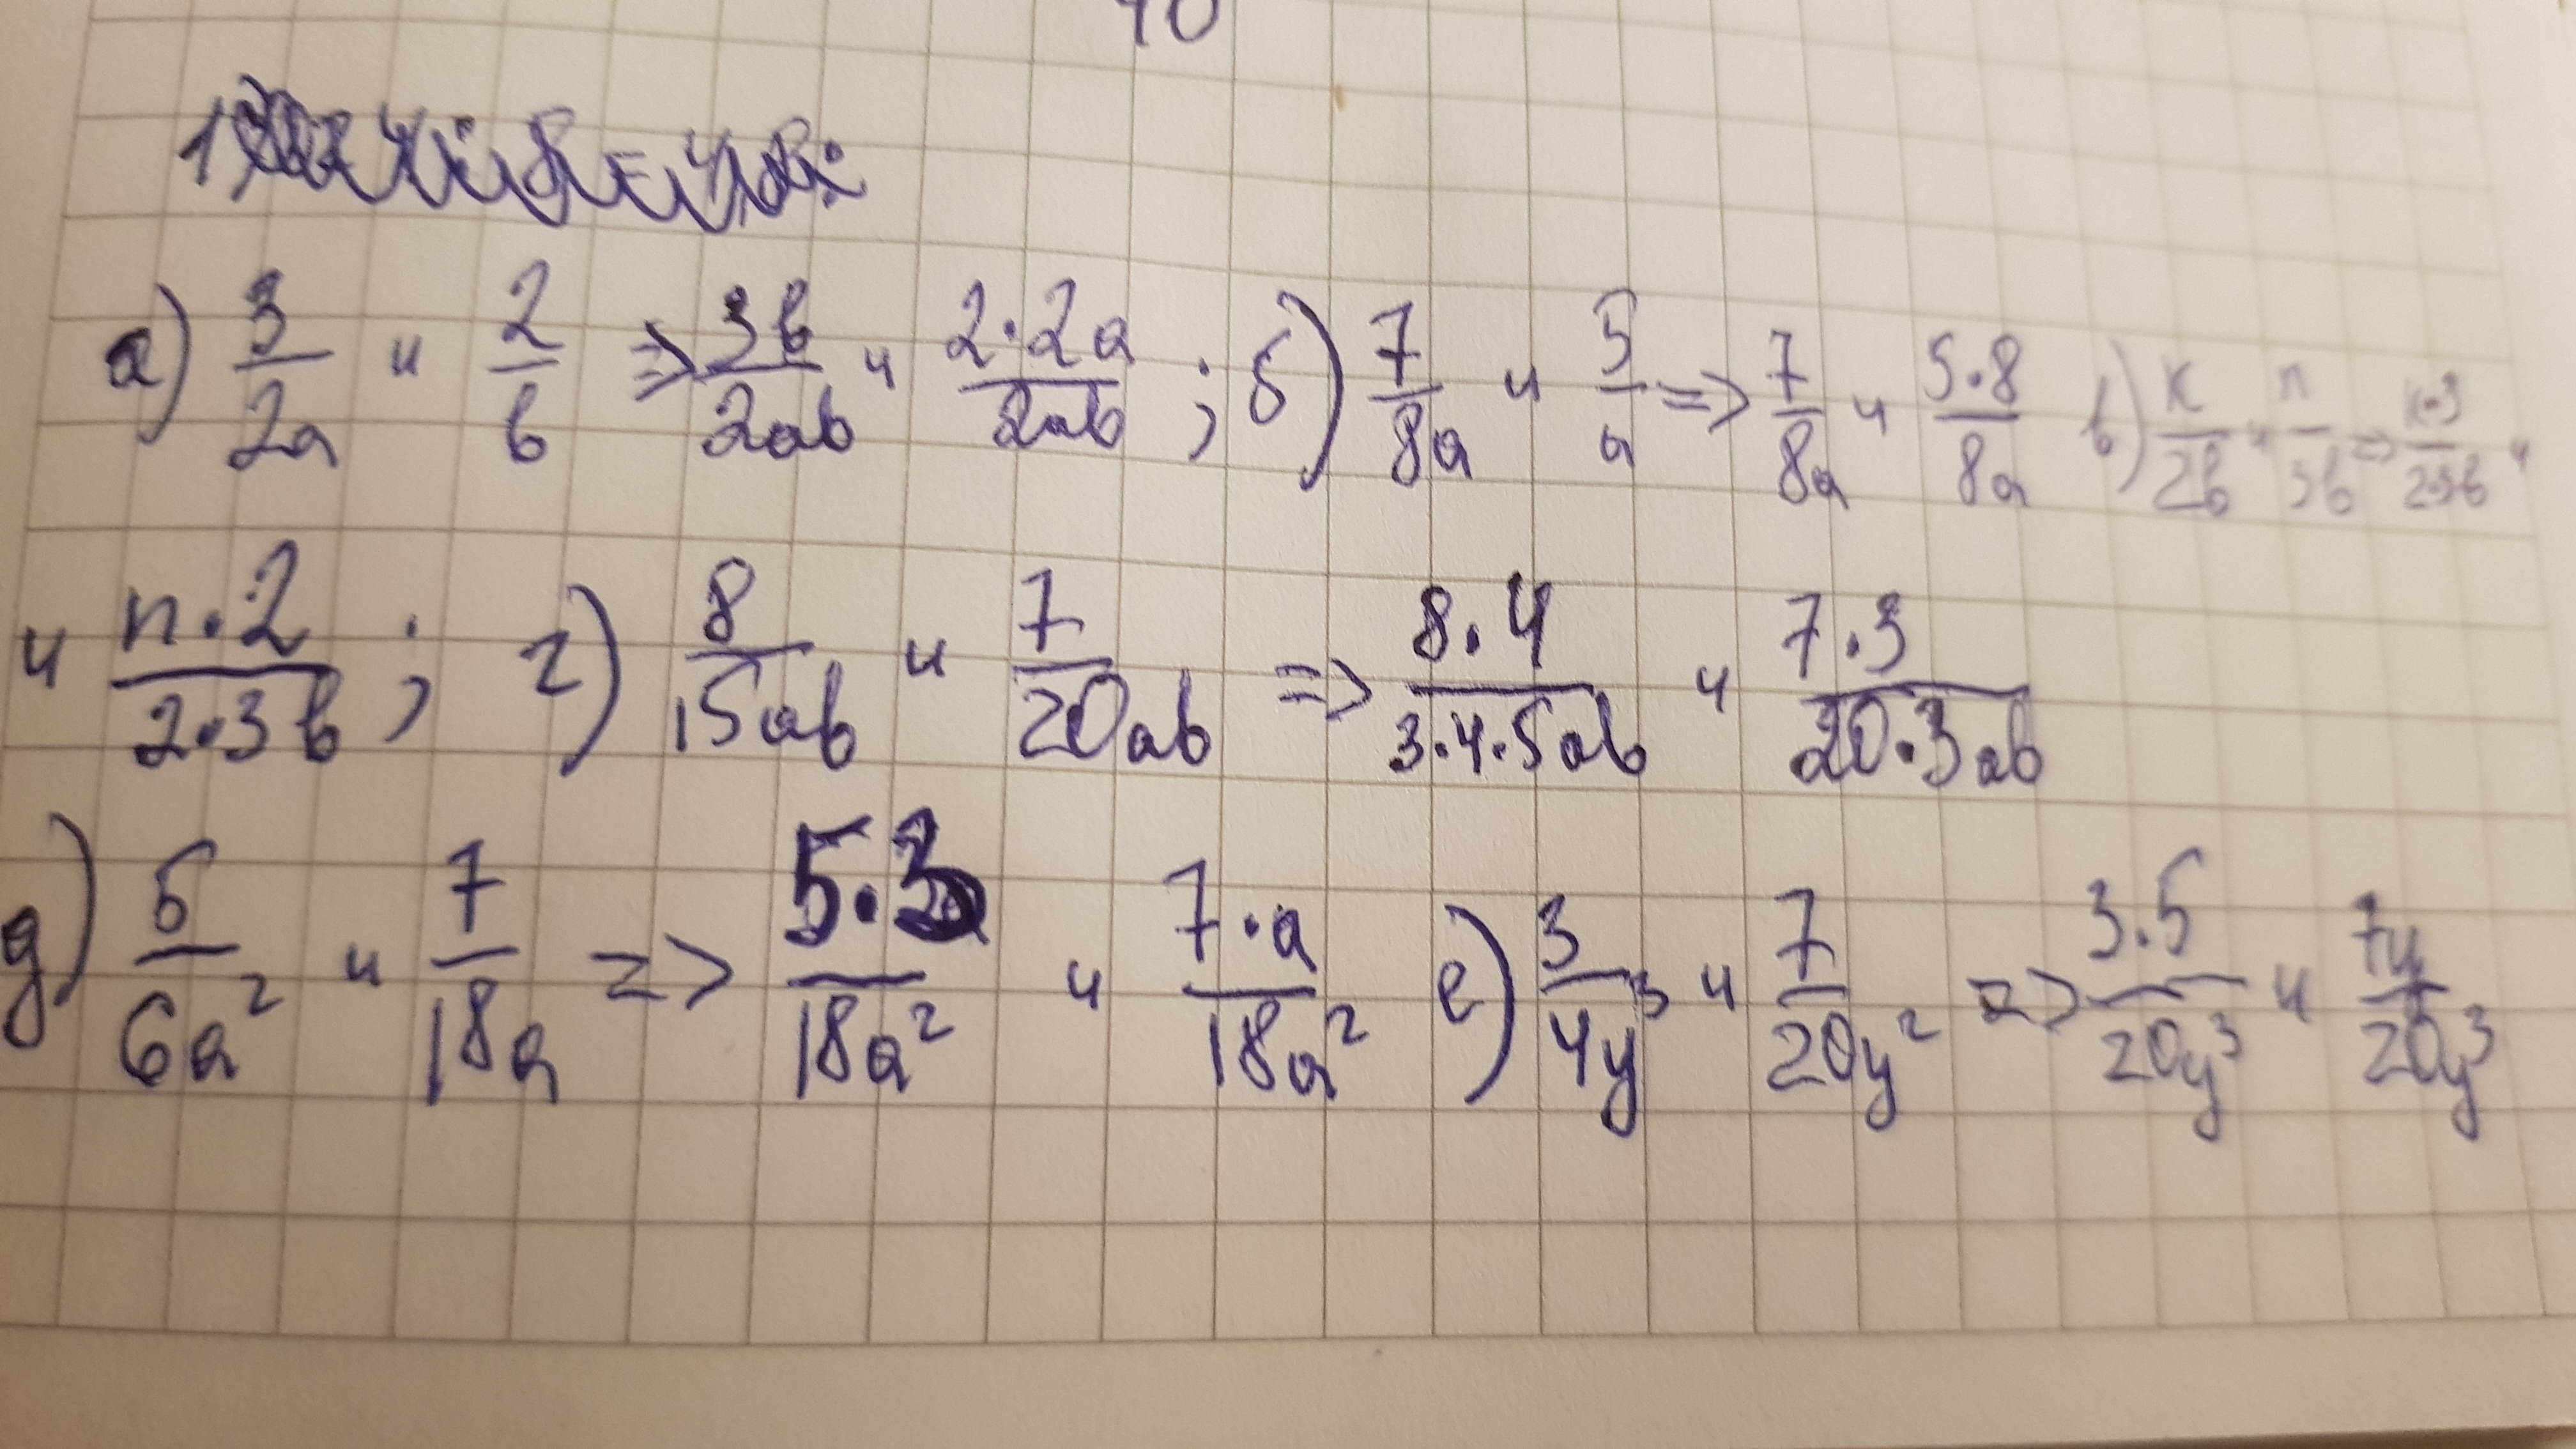 40
а) 3/2a и 2/b => 3b/2ab и 2·2a/2ab ; б) 7/8a и 5/a => 7/8a и 5·8/8a в) к/2b и n/3b => к·3/2·3b и
и n·2/2·3b ; г) 8/15ab и 7/20ab => 8·4/3·4·5ab и 7·3/20·3ab
д) 5/6a² и 7/18a => 5·3/18a² и 7·a/18a² е) 3/4y³ и 7/20y² => 3·5/20y³ и 7y/20y³